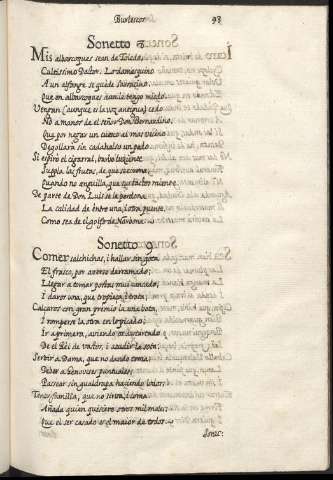 Burlescos.
98
Sonetto 8.
Mis albarcoques sean de Toledo,
Cultissimo Dottor. Lo damasquino
A un alfange se quede Sarracino,
Que en albarcoques hanle tengo miedo.
Vengan (aunque es la voz antigua) cedo
NO a manos de el señor Don Bernardino,
Que por negar un cuesco al mas vecino
Degollara sin cadahalso un pedo.
Si espiro el cigarral,
Supla las frutas, de que se corona
Quando no anguilla, que su tacto miente.
De parte de Don Luis se le perdona
La calidad de entre una i otra puente,
Como sea de el golfo de Narbona.
Sonetto 9.
Comer salchichas, i hallar sin gota
El frasco, por averse derramado;
Llegar a tomar postas mui cansado,
I daros una, que tropieça, i trota;
Calçaros con gran premio la una bota,
I romperse la otra en lo picado;
Ir a primera, aviendo os descartado
De el Rei de vastos, i acudir la sota.
Servir a Dama, que no dando toma;
Deber a Genoveses puntuales;
Passear sin gualdrapa haciendo lodos;
Tener familia, que no sirva, i coma:
Añada quien quisiere otros mil males;
Que el ser casado es el maior de todos.
Sonet: